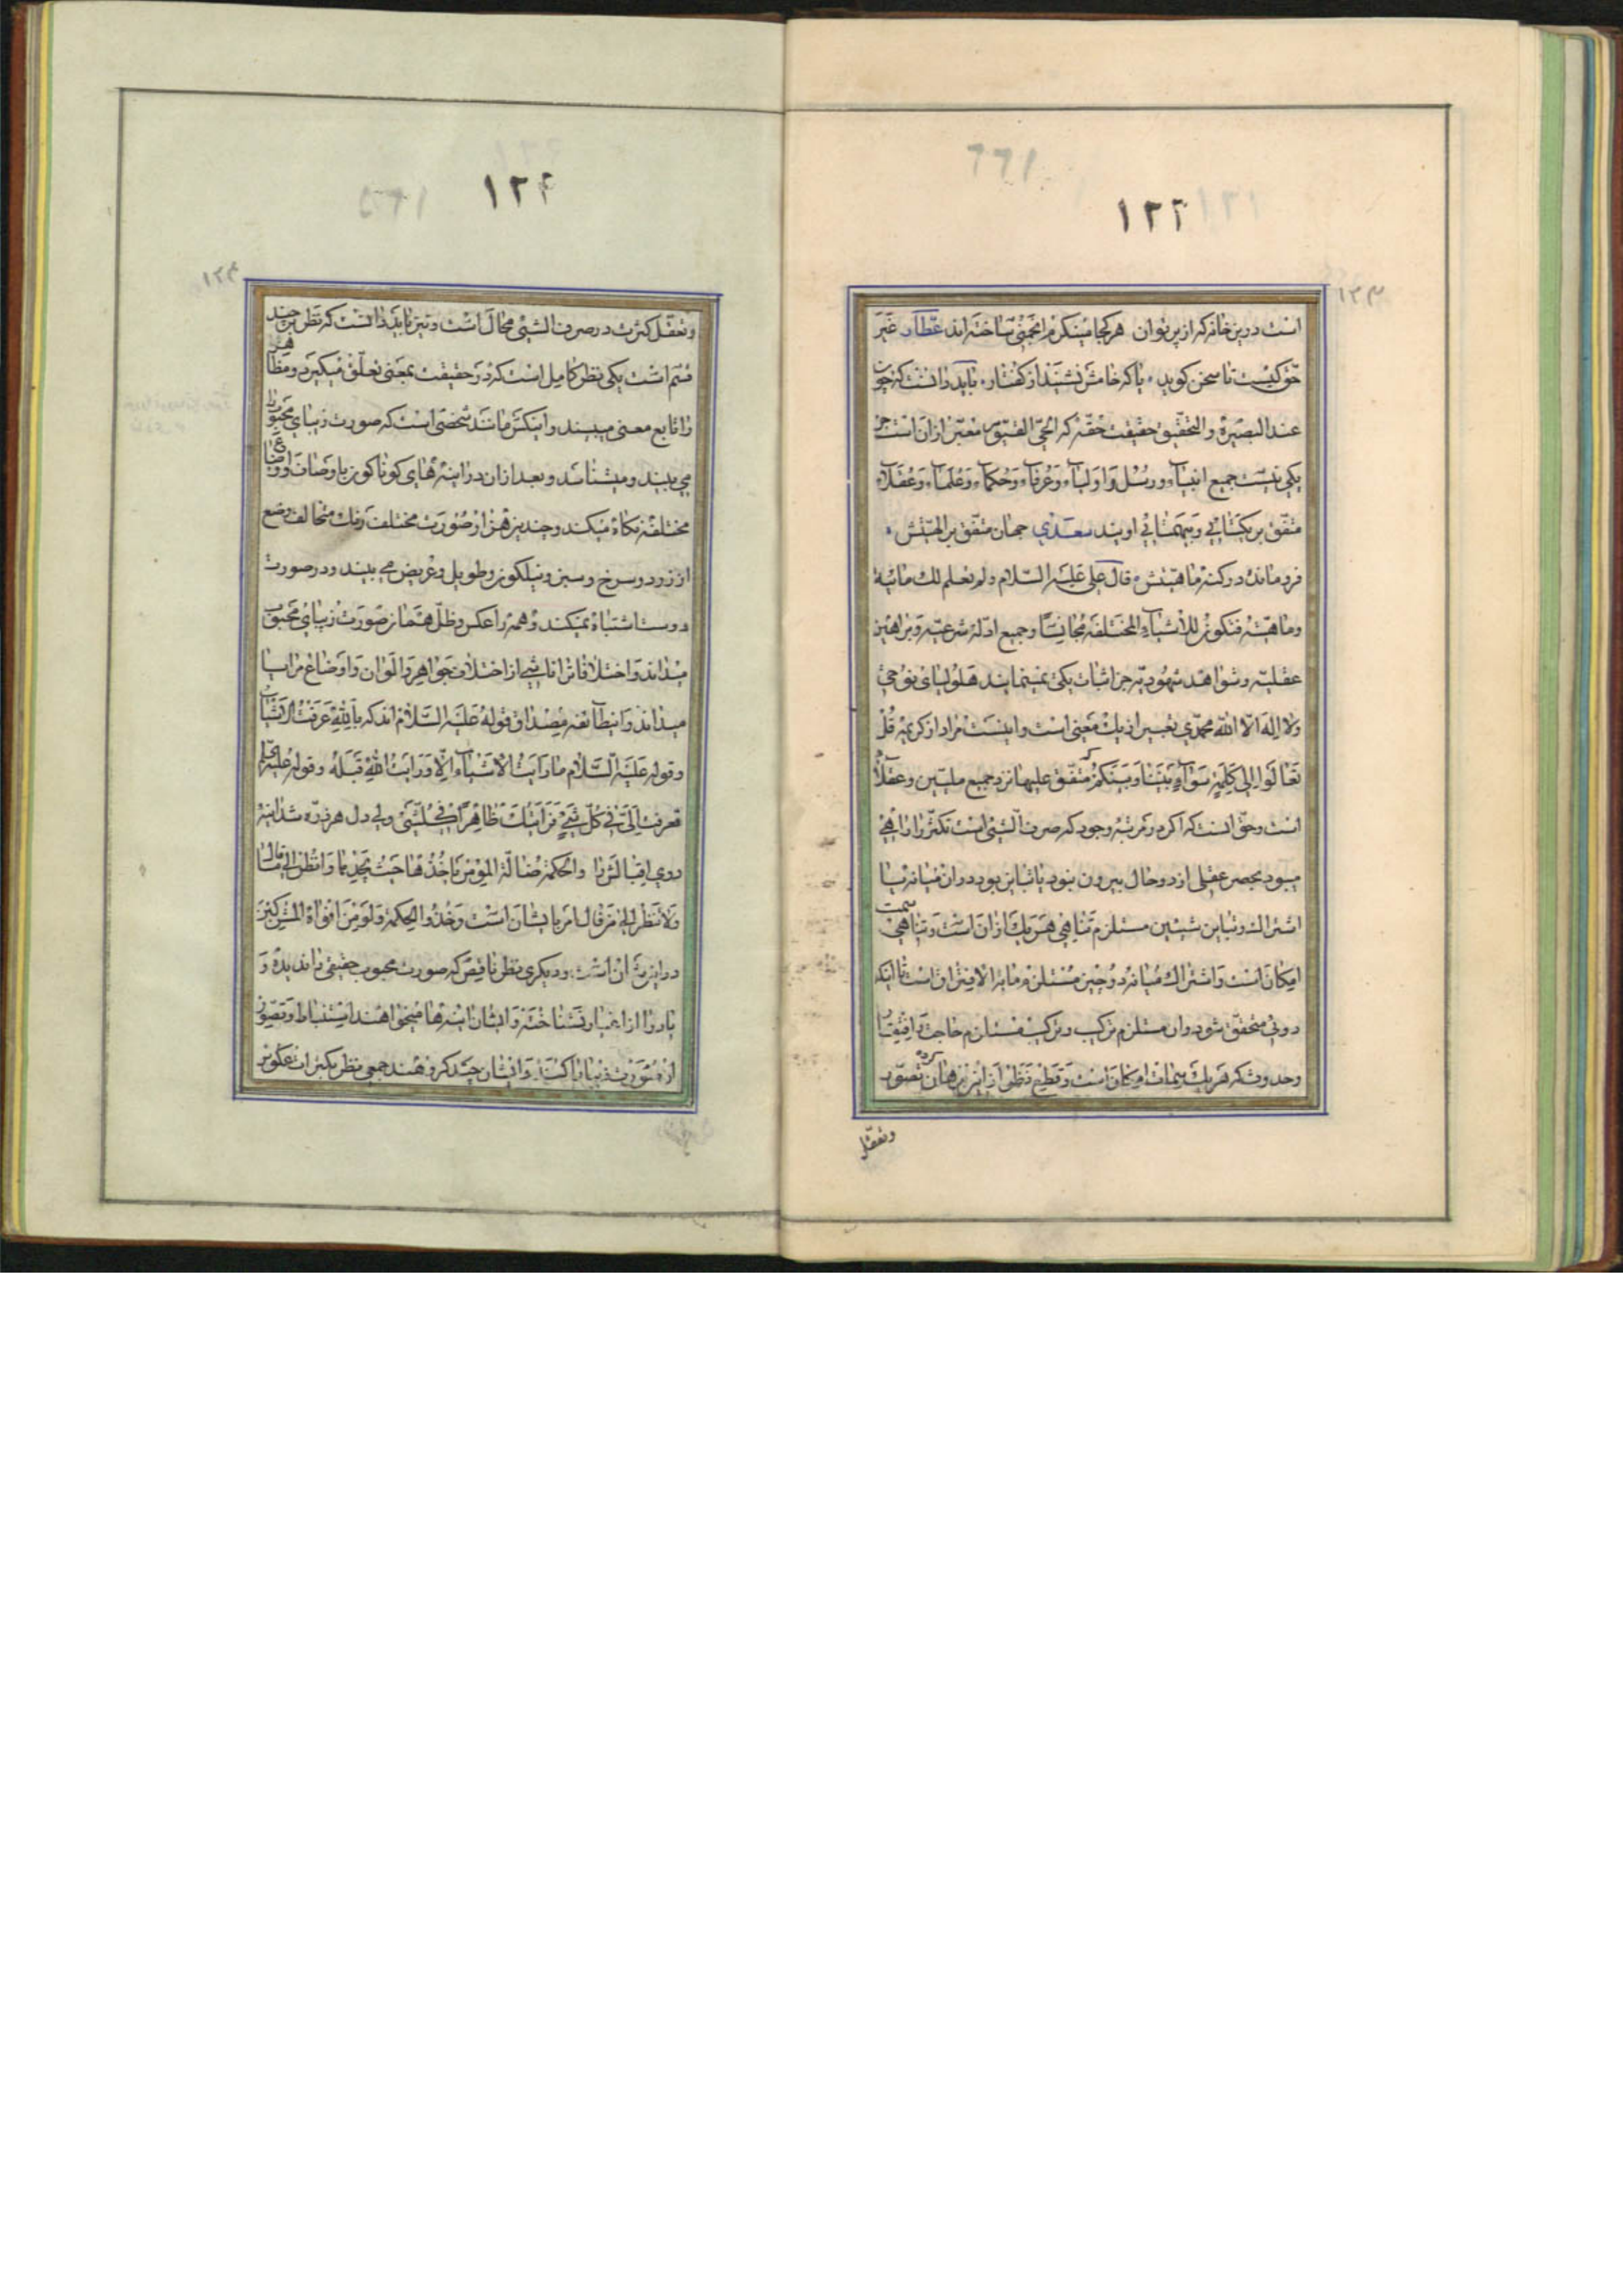 ١٢٢
است درین خانه که از پرتو آن هر کجا مینگرم انجمنی ساخته اند عطار غیر
حق کیست تا سخن گوید یا که خامش نشیند از گفتار باید دانست که چون
عند البصیرة والتحقیق حقیقت حقّه که الحیّ القیّوم معبّر از آن است جز
یکی نیست جمیع انبیاء ورسل واولیاء وعرفاء وحکماء وعلماء وعقلاء
متفّق بر یکتایی وبیهمتایی اویند سعدی جهان متفّق بر الهیّتش
فرو مانده در کنه ماهیّتش قال علی علیه السّلام ولم تعلم لك مائیة
وماهیّته فتکون للأشیاء المختلفة مجانسًا وجمیع ادلّه شرعیّه وبراهین
عقلیّه وشواهد شهودیّه جز اثبات یکی نمینمایند
ولا اله الّا الله محمّدی تعبیر از یك معنی است واینست مراد از کریمه قُلْ
تَعَالَوا اِلی کَلِمَةٍ سَوَآءٍ بَیْنَنا وَبَیْنَکُمْ که متفّق علیها نزد جمیع ملیّین وعقلاء
است وحقّ انست که اگر در مرتبه وجود که صرف الشیئ است تکثّر را راهی
میبود بحصر عقلی از دو حال بیرون نبود یا تباین بود در آن میانه یا
اشتراك وتباین شیئین مستلزم تناهی هریك از آن است وتناهی سمت
امکان است واشتراك میانه دو چیز مستلزم ما به الافتراق است تا اینکه
دوئی متحقّق شود وان مستلزم ترکیب وترکیب مستلزم حاجت وافتقار
وحدوث که هریك سمات امکان است وقطع نظر از این برهان کرده تصوّر
وتعقّل
١٢٣
وتعقّل کثرت در صرف الشیئ محال است ونیز باید دانست که نظر بر چند
قسم است یکی نظر کامل است که در حقیقت بمعنی تعلّق میگیرد ومظاهر
را تابع معنی میبیند واینکس مانند شخصی است که صورت زیبای محبوب را
می بیند ومیشناسد وبعد از آن در اینه های گوناگون با وصاف واوضاع
مختلفه نگاه میکند وچندین هزار صورت مختلف رنك متخالف وضع
از زرد وسرخ وسبز ونیلگون وطویل وعریض می بیند ودر صورت
دوست اشتباه نمیکند وهمه را عکس وظلّ همان صورت زیبای محبوب
میداند واختلافات را ناشی از اختلاف جواهر والوان واوضاع مرایا
میداند وانطائفه مصداق قوله علیه السّلام اند که بالله عَرَفْتُ الاشیاء
وقوله علیه السّلام ما رایت الاشیاء الّا ورایت الله قبله وقوله علیه السلم
تعرفت اِلیّ فی کُلّ شیءٍ فرَأیتك ظاهراً فی کلّشیء ولی دل هر ذرّه شد اینه
روی اقبالش را والحکمة ضالّة المؤمن یاخذها حیث یجدها وانظر الی ما قال
ولا تنظر الی من قال امر بایشان است وخذوا الحکمة ولو من افواه المشرکین
در این شان است ودیگری نظر ناقص که صورت محبوب حقیقی را ندیده و
یار را از اغیار نشناخته وایشان اینه ها میخواهند استنباط وتصوّر
از صورت زیبا را کنند وایشان چند گروهند جمعی نظر بکثرات عکوس